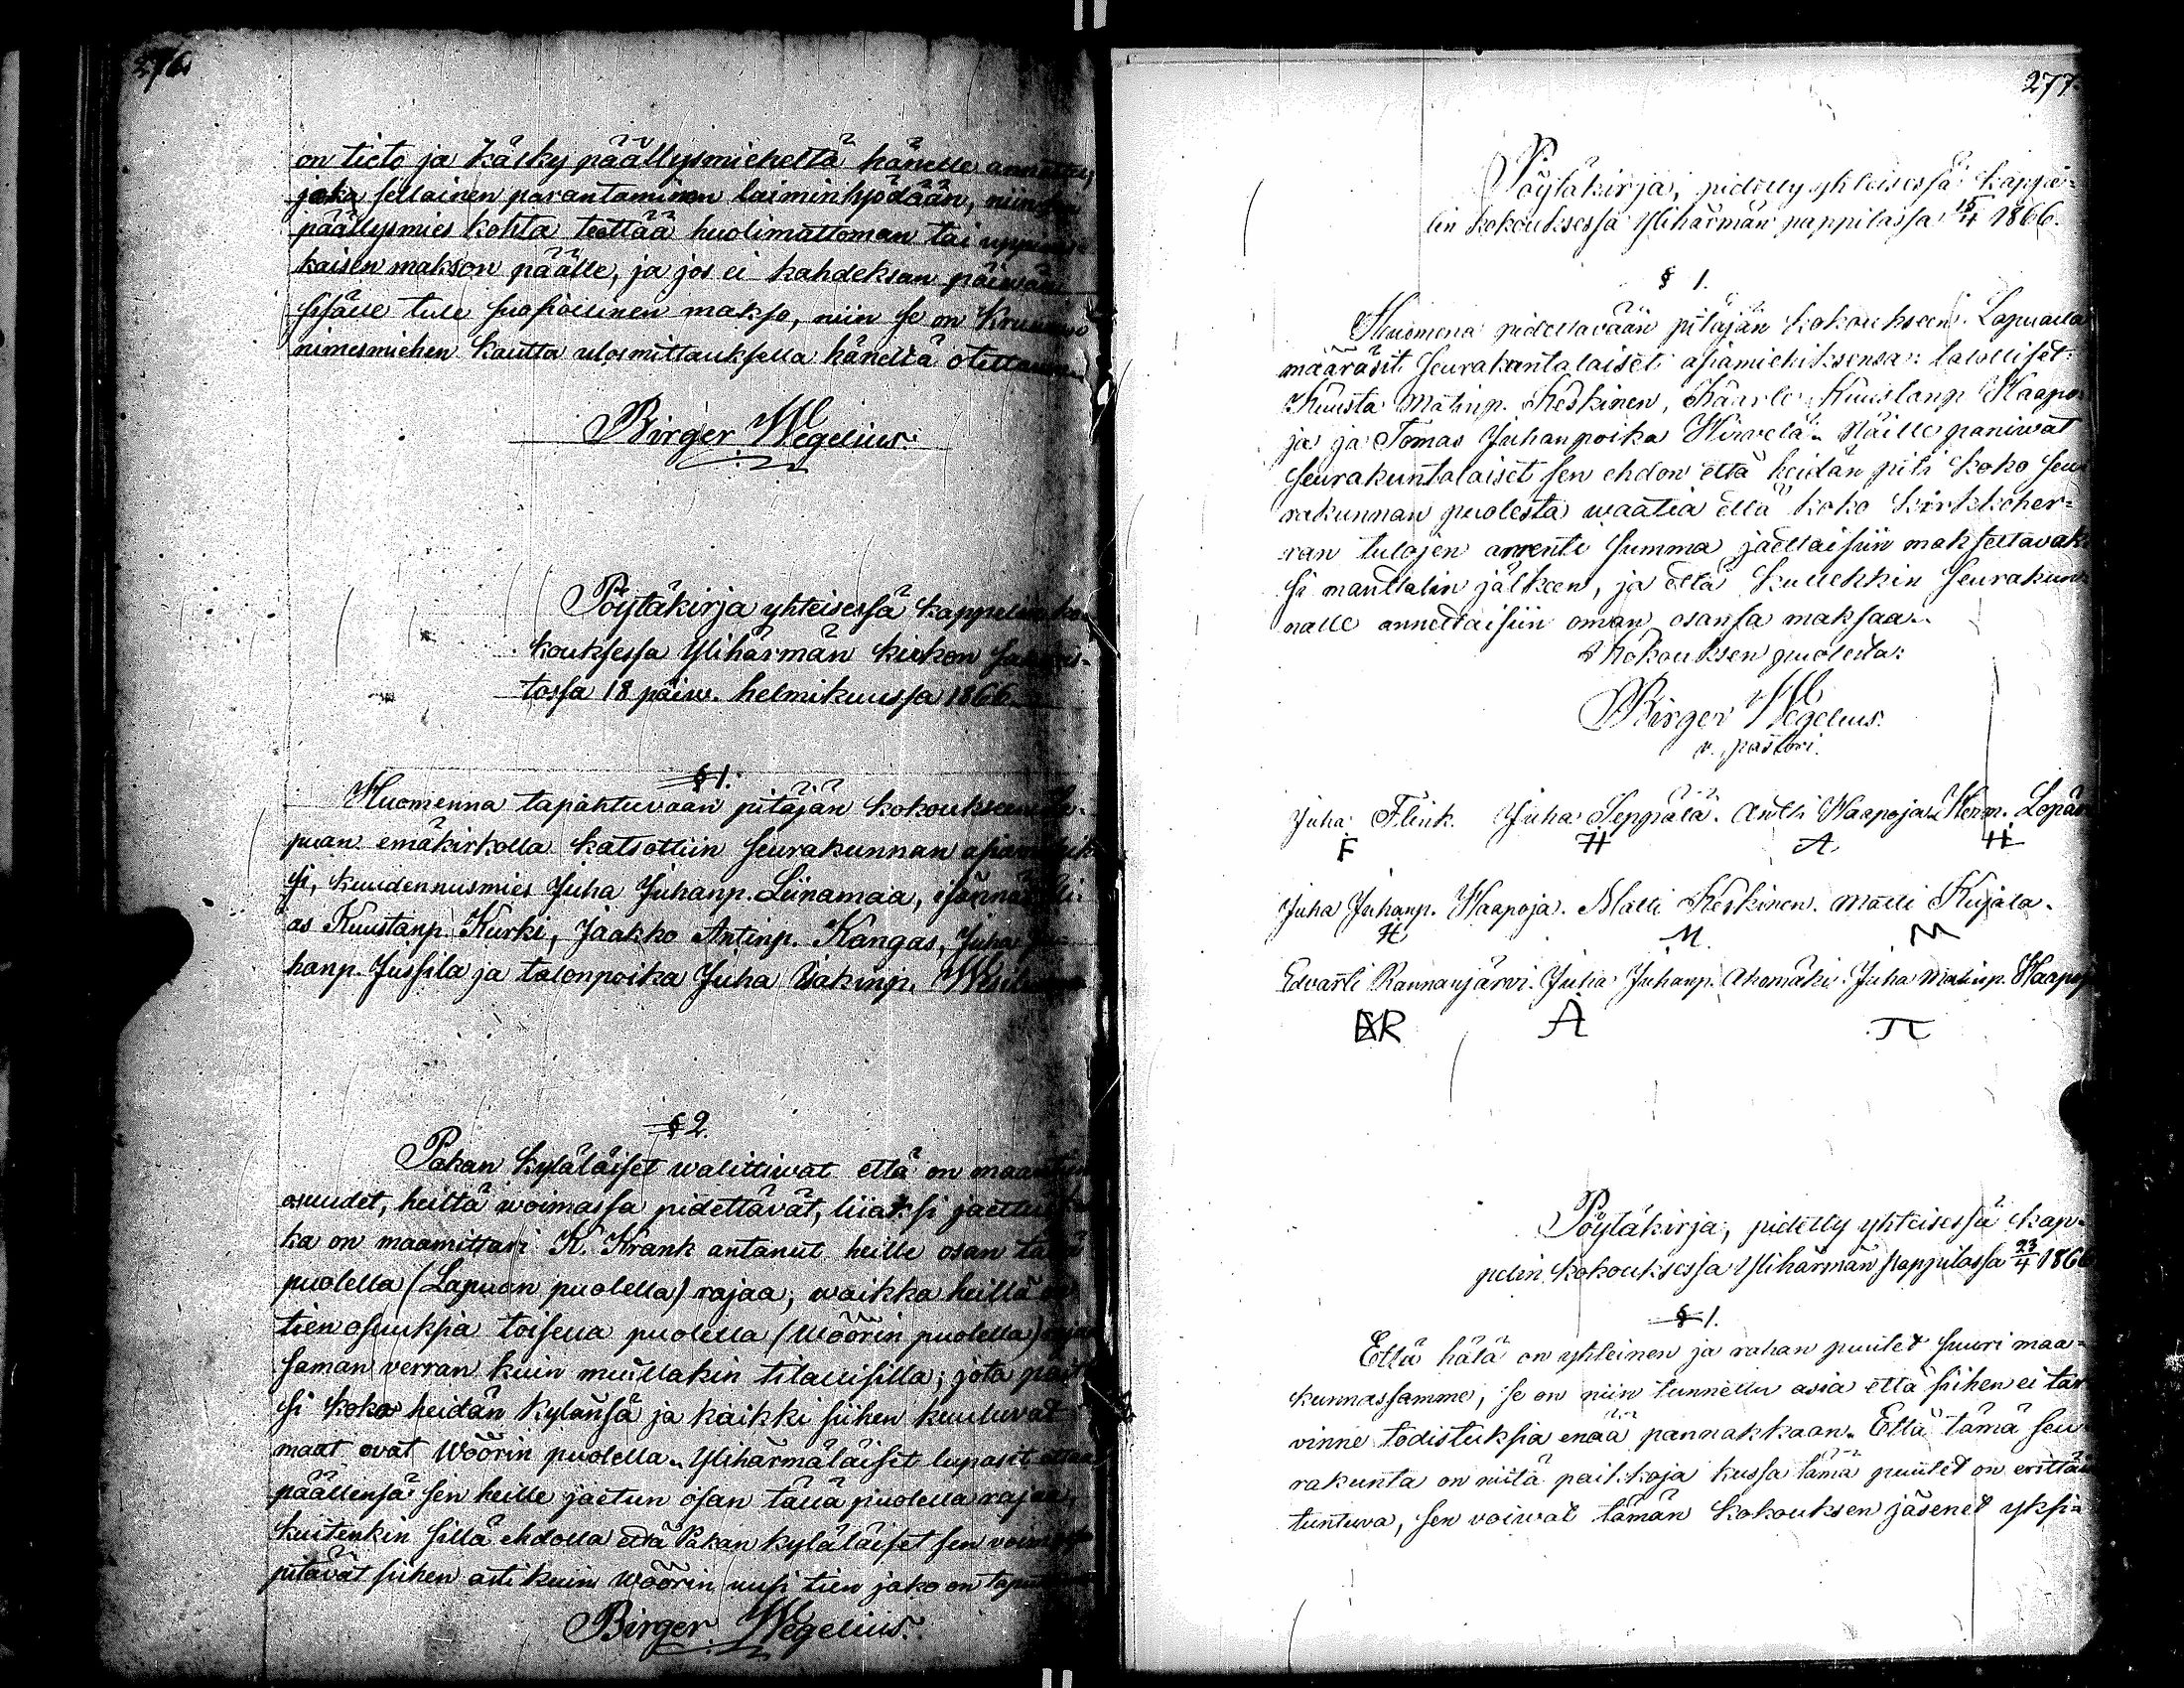 276.
on tieto ja käsky päällysmieheltä hänelle annettu,
joka sellainen parantaminen laiminlyödään, niin
päällysmies kohta teettää huolimattoman tai
kaisen makson päälle, ja jos ei kahdeksan päivän
sisälle tule suosiollinen makso, niin se on Kruunun
nimesmiehen kautta ulosmittauksella häneltä otettava.
Birger Wegelius.
Pöytäkirja yhteisessä kappelin ko-
kouksessa Ylihärmän kirkon
tossa 18 päiw. helmikuussa 1866.
§ 1.
Huomenna tapahtuvaan pitäjän kokoukseen La-
puan emäkirkolla katsottiin seurakunnan
si, kuudennusmies Juha Juhanp. Liinamaa,
as Kuustanp. Kurki, Jaakko Antinp. Kangas, Juha Ju-
hanp. Jussila ja talonpoika Juha Isakinp.
§ 2.
Pakan kyläläiset walittivat että on maantien
osuudet, heiltä woimassa pidettävät, liiaksi jaettu,
ka on maamittari K. Krank antanut heille osan tällä
puolella (Lapuan puolella) rajaa, waikka heillä on
tien osuuksia toisella puolella (Wöörin puolella) rajaa
saman verran kuin muillakin tilallisilla; jota pait-
si koko heidän kylänsä ja kaikki siihen kuuluvat
maat ovat Wöörin puolella. Ylihärmäläiset lupasit ottaa
päällensä sen heille jaetun osan tällä puolella rajaa,
kuitenkin sillä ehdolla että Pakan kyläläiset sen voimassa
pitävät siihen asti kuin Wöörin uusi tien jako on
Birger Wegelius.
277.
Pöytäkirja, pidetty yhteisessä kappe-
lin kokouksessa Ylihärmän pappilassa 15/4 1866.
§ 1.
Huomena pidettävään pitäjän kokoukseen Lapualla
määräsit seurakuntalaiset asiamiehiksensä: talolliset
Kuusta Matinp. Keskinen, Kaarle Kuustanp Haapo-
ja ja Tomas Juhanpoika Hirvelä. Näille paniwat
seurakuntalaiset sen ehdon että heidän piti koko seu-
rakunnan puolesta waatia että koko kirkkoher-
ran tulojen arrenti summa jaettaisiin maksettavak-
si manttalin jälkeen, ja että kullekkin seurakun-
nalle annettaisiin oman osansa maksaa.
Kokouksen puolesta:
Birger Wegelius.
v. pastori.
Juha Flink. Juha Seppälä. Antti Haapoja. Herm. Lopar
F H A H
Juha Juhanp. Haapoja. Matti Keskinen. Matti Kujala.
H M M
Edvartti Rannanjärvi. Juha Juhanp. Ahomäki. Juha Matinp. Haapoj
ER A
Pöytäkirja, pidetty yhteisessä kap-
pelin kokouksessa Ylihärmän pappilassa 23/4 1866
§ 1.
Että hätä on yhteinen ja rahan puutet suuri maa-
kunnassamme, se on niin tunnettu asia että siihen ei tar
vinne todistuksia enää pannakkaan. Että tämä seu-
rakunta on niitä paikkoja kussa tämä puutet on erittäin
tuntuva, sen voiwat tämän kokouksen jäsenet yksi-